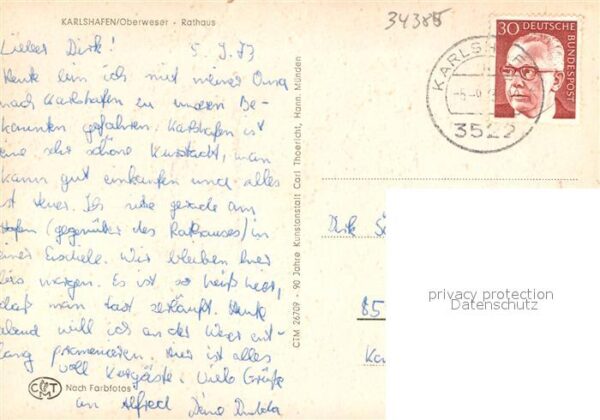 KARLSHAFEN/Oberweser - Rathaus
34385
Lieber Dirk! 5.7.73
Heute bin ich mit meiner Oma
nach Karlshafen zu unseren Be-
kannten gefahren. Karlshafen ist
eine sehr schöne Kurstadt, man
kann gut einkaufen und alles
ist teuer. Ich sitze gerade am
Hafen (gegenüber des Rathauses) in
einer Eisdiele. Wir bleiben hier
bis morgen. Es ist so heiß hier,
daß man fast zerläuft. Heute
abend will ich an der Weser ent-
lang promenieren. Hier ist alles
voll Kurgäste. Viele Grüße
an Alfred Deine
CTM
Nach Farbfotos
CTM 26709 - 90 Jahre Kunstanstalt Carl Thoericht, Hann. Münden
30 DEUTSCHE BUNDESPOST
KARLSH
3522
Dirk
85
privacy protection
Datenschutz